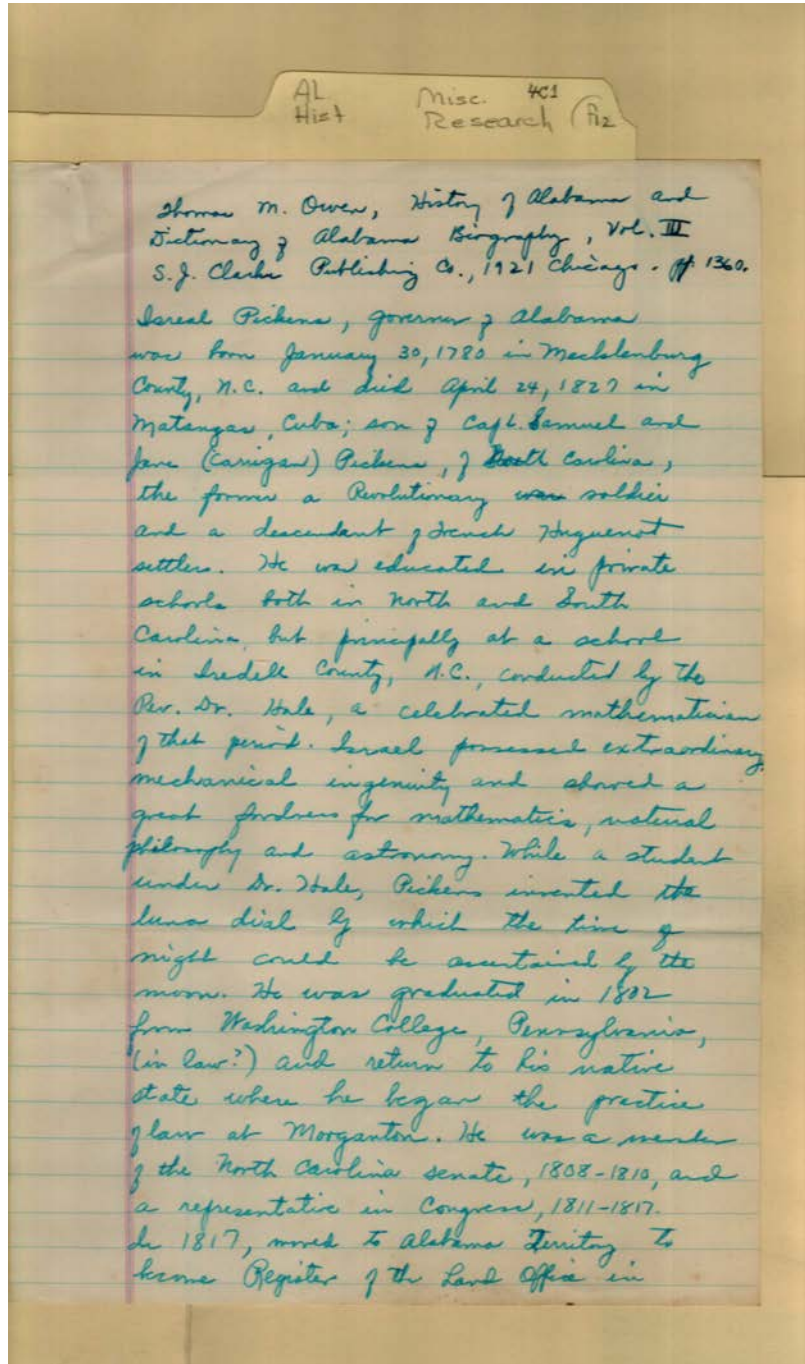 AL Misc. 4C1
Hist Research R2
Thomas M. Owen, History of Alabama and
Dictionary of Alabama Biography, Vol. III
S.J. Clarke Publishing Co., 1921 Chicago. pp. 1360.
Isreal Pickens, governor of Alabama
was born January 30, 1780 in Mecklenburg
County, N.C. and died April 24, 1827 in
Matangas, Cuba; son of Capt. Samuel and
Jane (Carrigan) Pickens, of South Carolina,
the former a Revolutionary war soldier
and a descendant of French Huguenot
settlers. He was educated in private
schools both in North and South
Carolina, but principally at a school
in Iredell County, N.C., conducted by the
Rev. Dr. Hale, a celebrated mathematician
of that period. Israel possessed extraordinary
mechanical ingenuity and showed a
great fondness for mathematics, natural
philosophy and astronomy. While a student
under Dr. Hale, Pickens invented the
luna dial by which the time of
night could be ascertained by the
moon. He was graduated in 1802
from Washington College, Pennsylvania,
(in law?) and return to his native
state where he began the practice
of law at Morganton. He was a member
of the North Carolina senate, 1808-1810, and
a representative in Congress, 1811-1817.
In 1817, moved to Alabama Territory to
become Register of the Land Office in